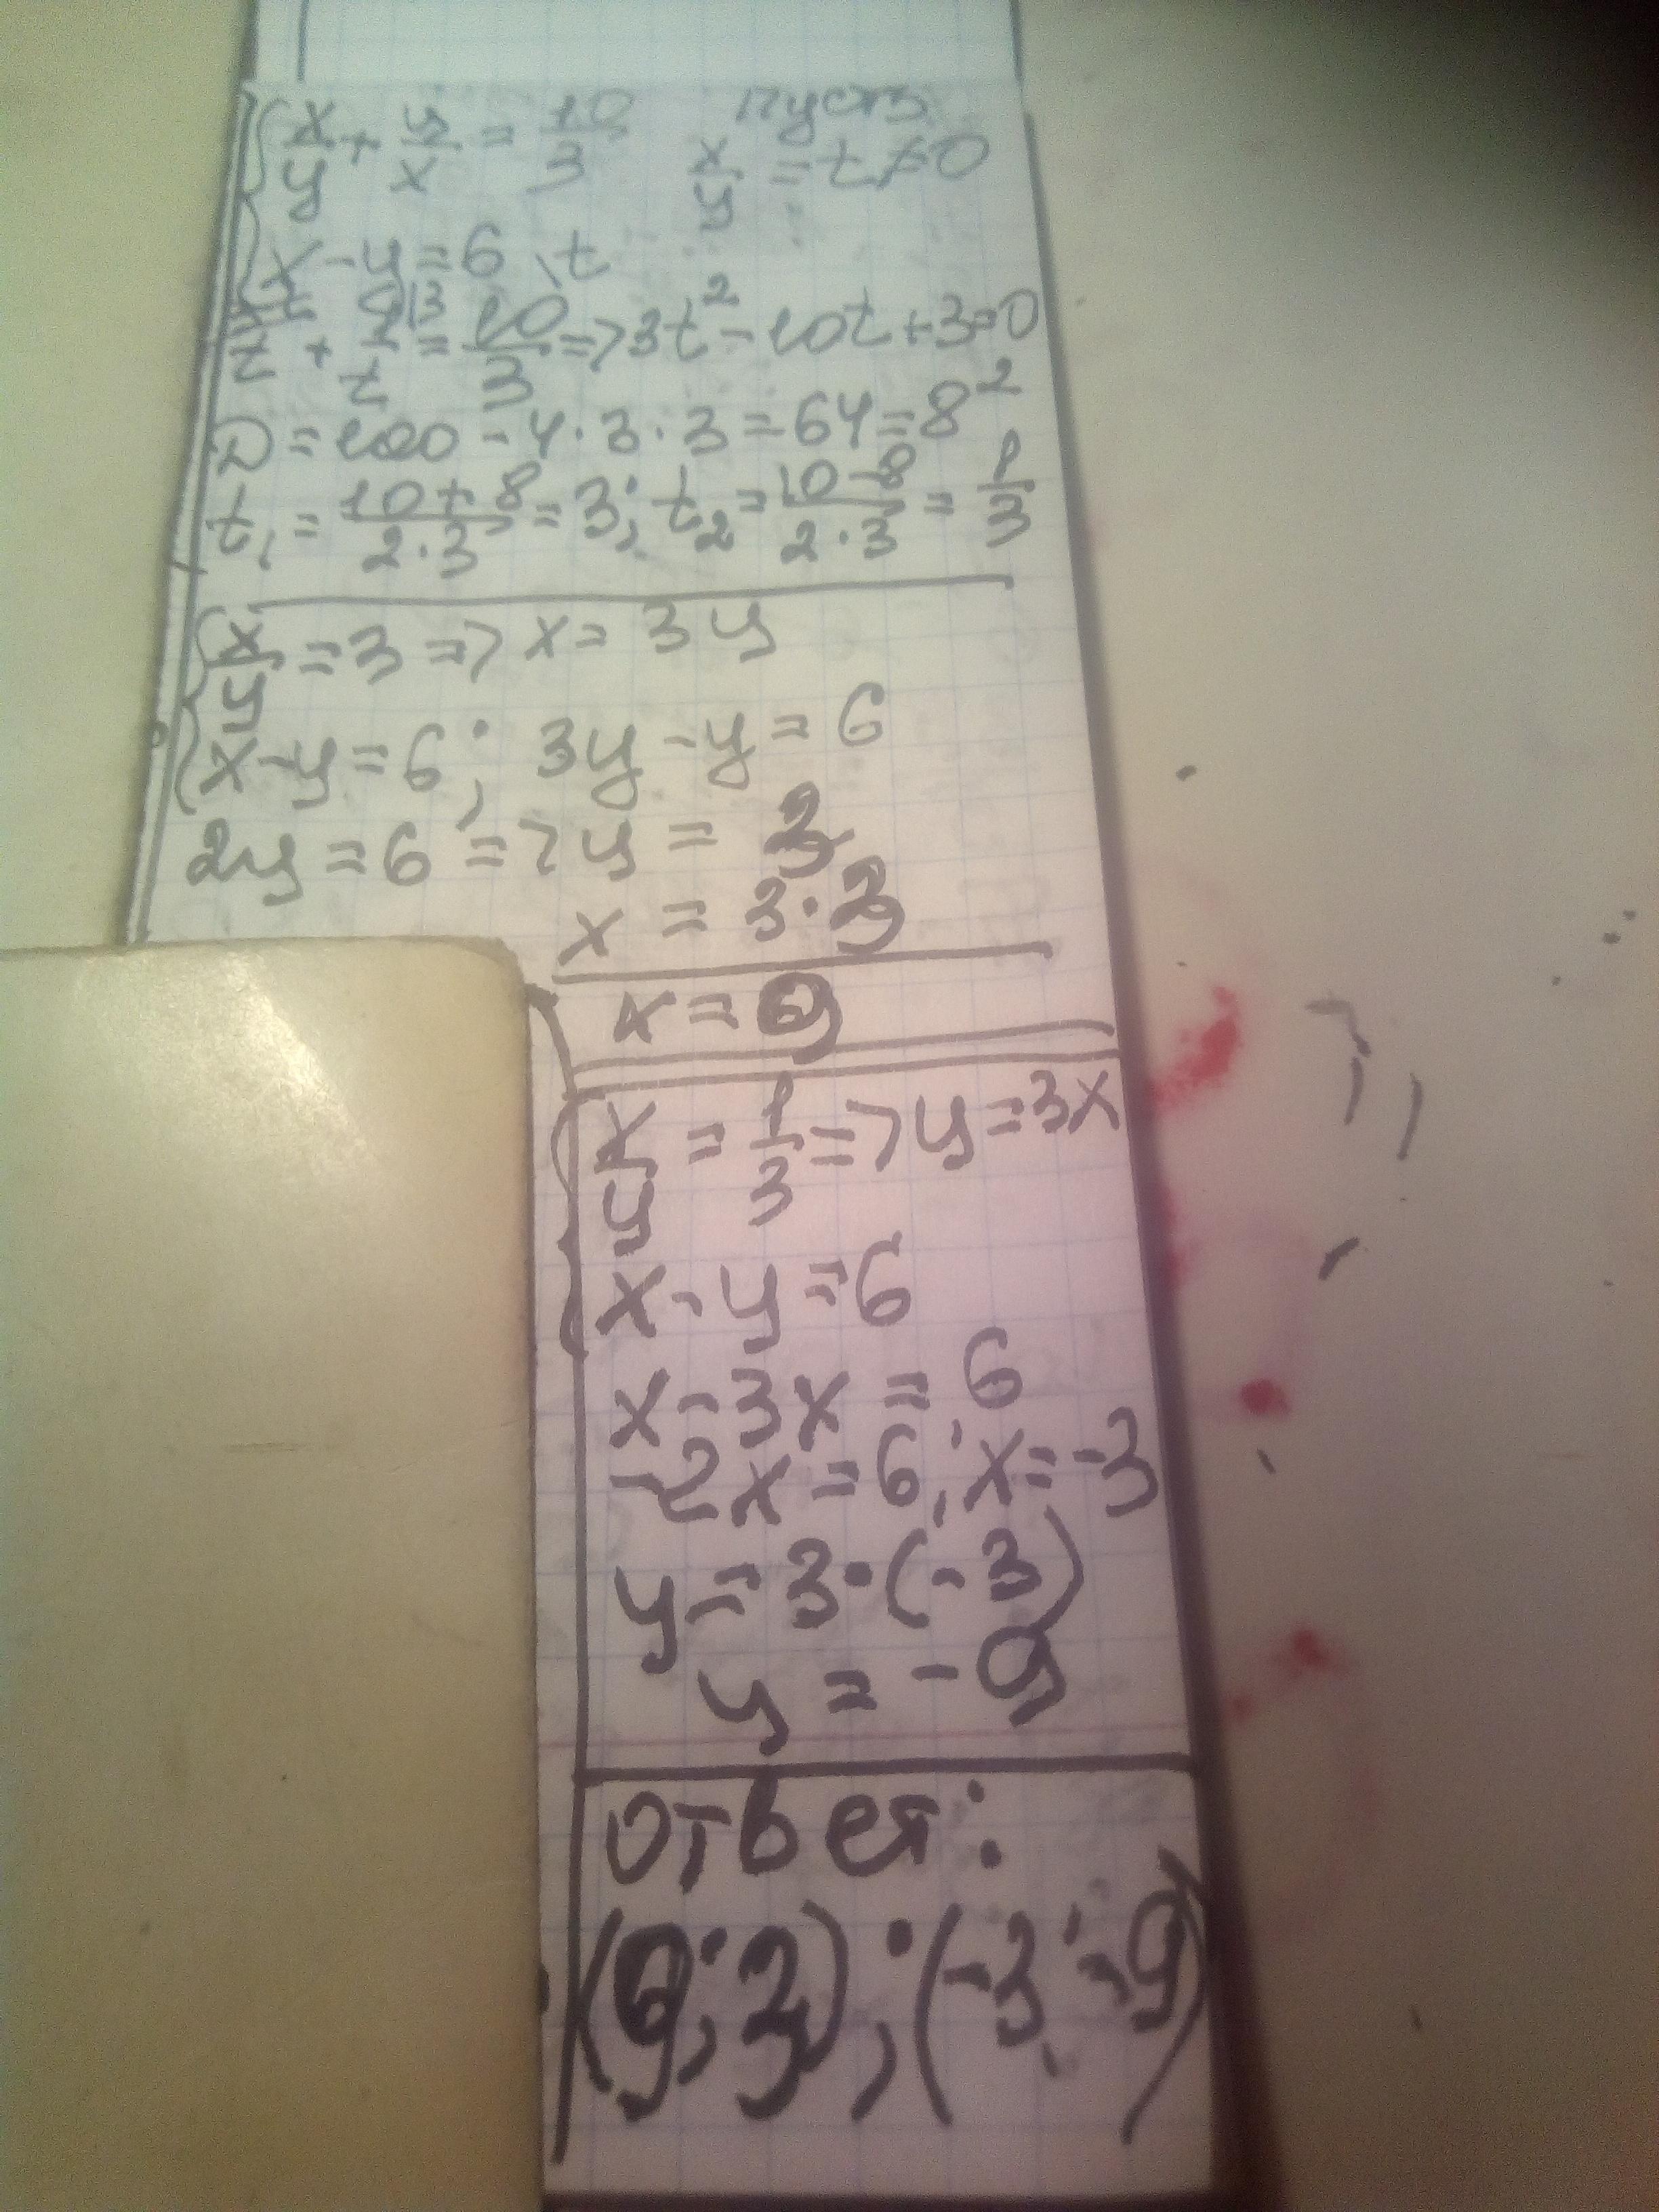 x/y + y/x = 10/3 пусть
x/y = t ≠ 0
x - y = 6
t/1 + 1/t = 10/3 => 3t² - 10t + 3 = 0
D = 100 - 4·3·3 = 64 = 8²
t₁ = (10+8)/(2·3) = 3; t₂ = (10-8)/(2·3) = 1/3
x/y = 3 => x = 3y
x - y = 6; 3y - y = 6
2y = 6 => y = 3
x = 3·3
x = 9
x/y = 1/3 => y = 3x
x - y = 6
x - 3x = 6
-2x = 6; x = -3
y = 3·(-3)
y = -9
Ответ:
(9; 3); (-3; -9)